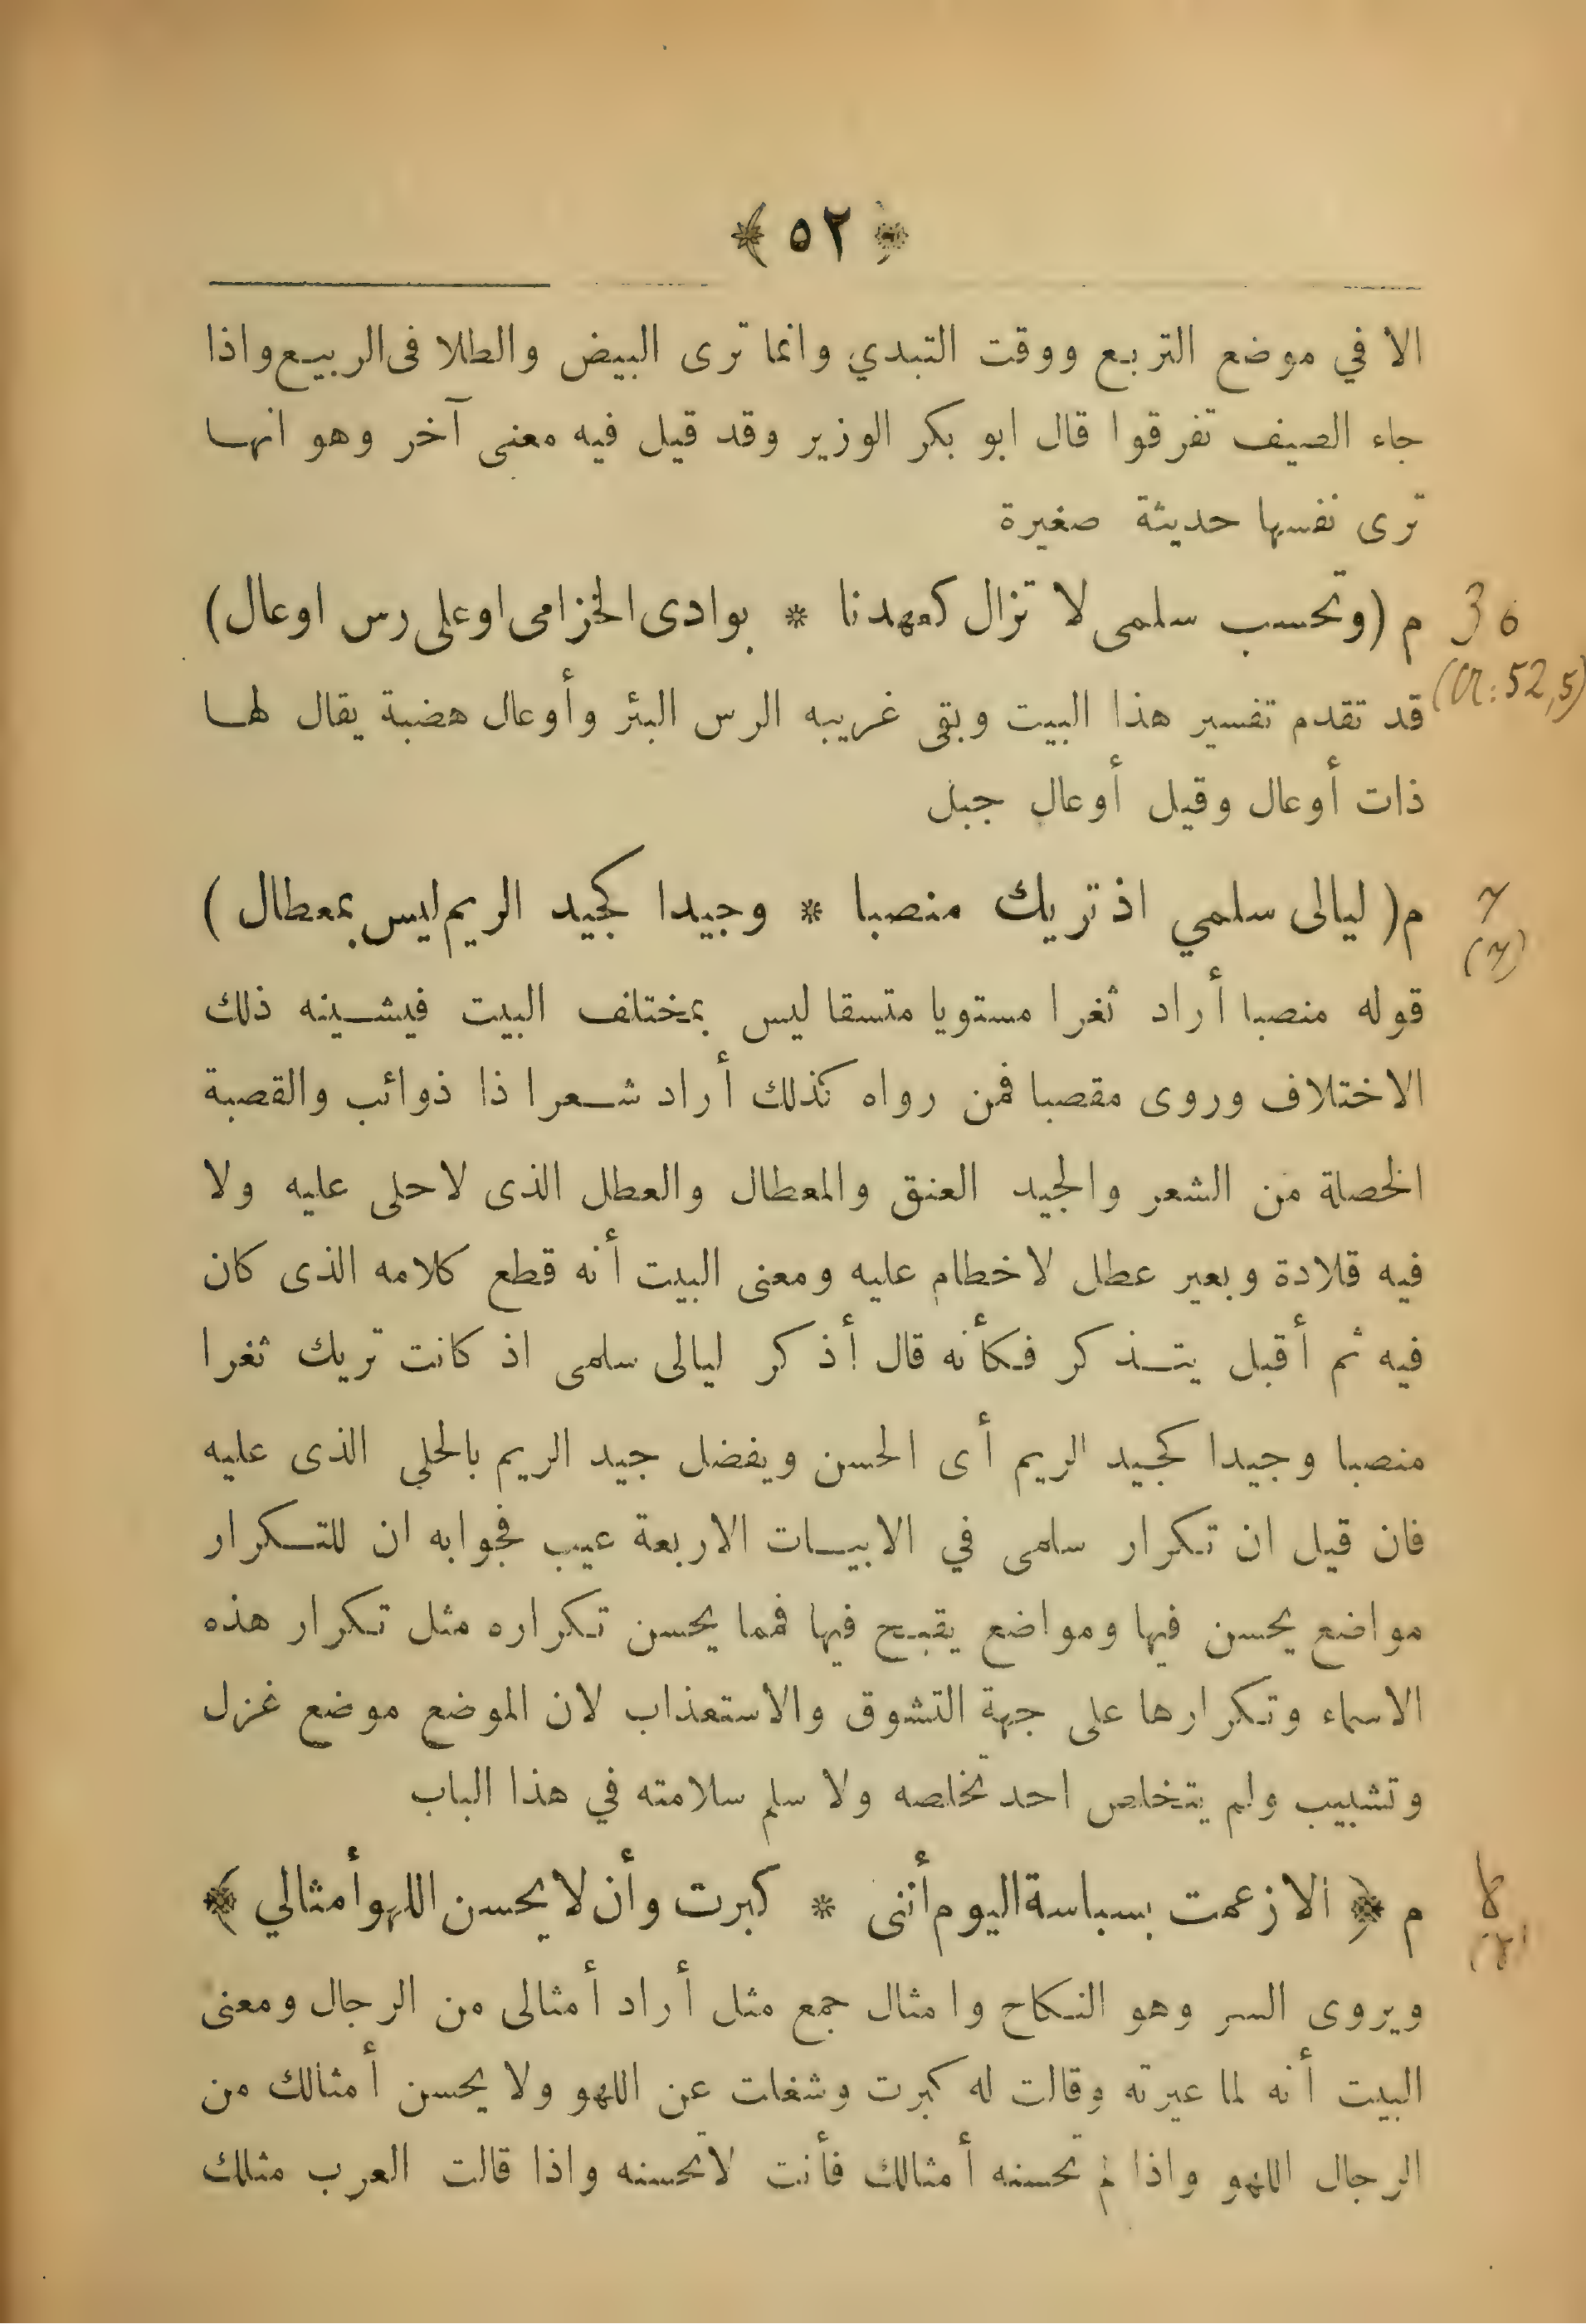 ﴿ ٥٢ ﴾
الا في موضع التربع ووقت التبدي وانما ترى البيض والطلا فى الربيع واذا
جاء الصيف تفرقوا قال ابو بكر الوزير وقد قيل فيه معنى آخر وهو انها
ترى نفسها حديثة صغيرة
م (وتحسب سلمى لا تزال كعهدنا * بوادى الخزامى اوعلى رس اوعال)
قد تقدم تفسير هذا البيت وبقى غريبه الرس البئر وأوعال هضبة يقال لها
ذات أوعال وقيل أوعال جبل
م( ليالى سلمي اذ تريك منصبا * وجيدا كجيد الريم ليس بمعطال )
قوله منصبا أراد ثغرا مستويا متسقا ليس بمختلف البيت فيشينه ذلك
الاختلاف وروى مقصبا فمن رواه كذلك أراد شعرا ذا ذوائب والقصبة
الخصلة من الشعر والجيد العنق والمعطال والعطل الذى لا حلى عليه ولا
فيه قلادة وبعير عطل لا خطام عليه ومعنى البيت أنه قطع كلامه الذى كان
فيه ثم أقبل يتذكر فكأنه قال أذكر ليالى سلمى اذ كانت تريك ثغرا
منصبا وجيدا كجيد الريم أى الحسن ويفضل جيد الريم بالحلي الذى عليه
فان قيل ان تكرار سلمى في الابيات الاربعة عيب فجوابه ان للتكرار
مواضع يحسن فيها ومواضع يقبح فيها فما يحسن تكراره مثل تكرار هذه
الاسماء وتكرارها على جهة التشوق والاستعذاب لان الموضع موضع غزل
وتشبيب ولم يتخلص احد تخلصه ولا سلم سلامته في هذا الباب
م ﴿ الا زعمت بسباسة اليوم أننى * كبرت وأن لا يحسن اللهو أمثالي ﴾
ويروى السر وهو النكاح وامثال جمع مثل أراد أمثالى من الرجال ومعنى
البيت أنه لما عيرته وقالت له كبرت وشغلت عن اللهو ولا يحسن أمثالك من
الرجال اللهو واذا لم تحسنه أمثالك فأنت لا تحسنه واذا قالت العرب مثلك